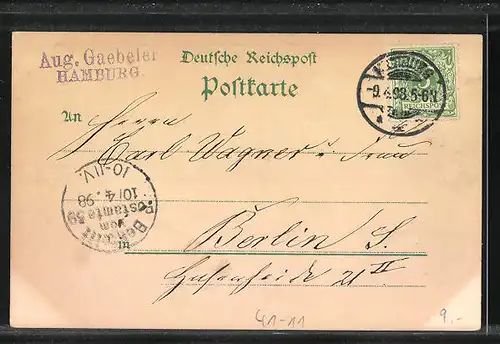 Aug. Gaebeler
HAMBURG.
Deutsche Reichspost
Postkarte
HAMBURG
9.4.98.5-6N.
REICHSPOST
An
Herrn
Carl Wagner u. Frau
in
Berlin S.
Hasenheide 21 II
Bestellt
vom
Postamte 59
10/4.98
10-11V.
41-11
9.-